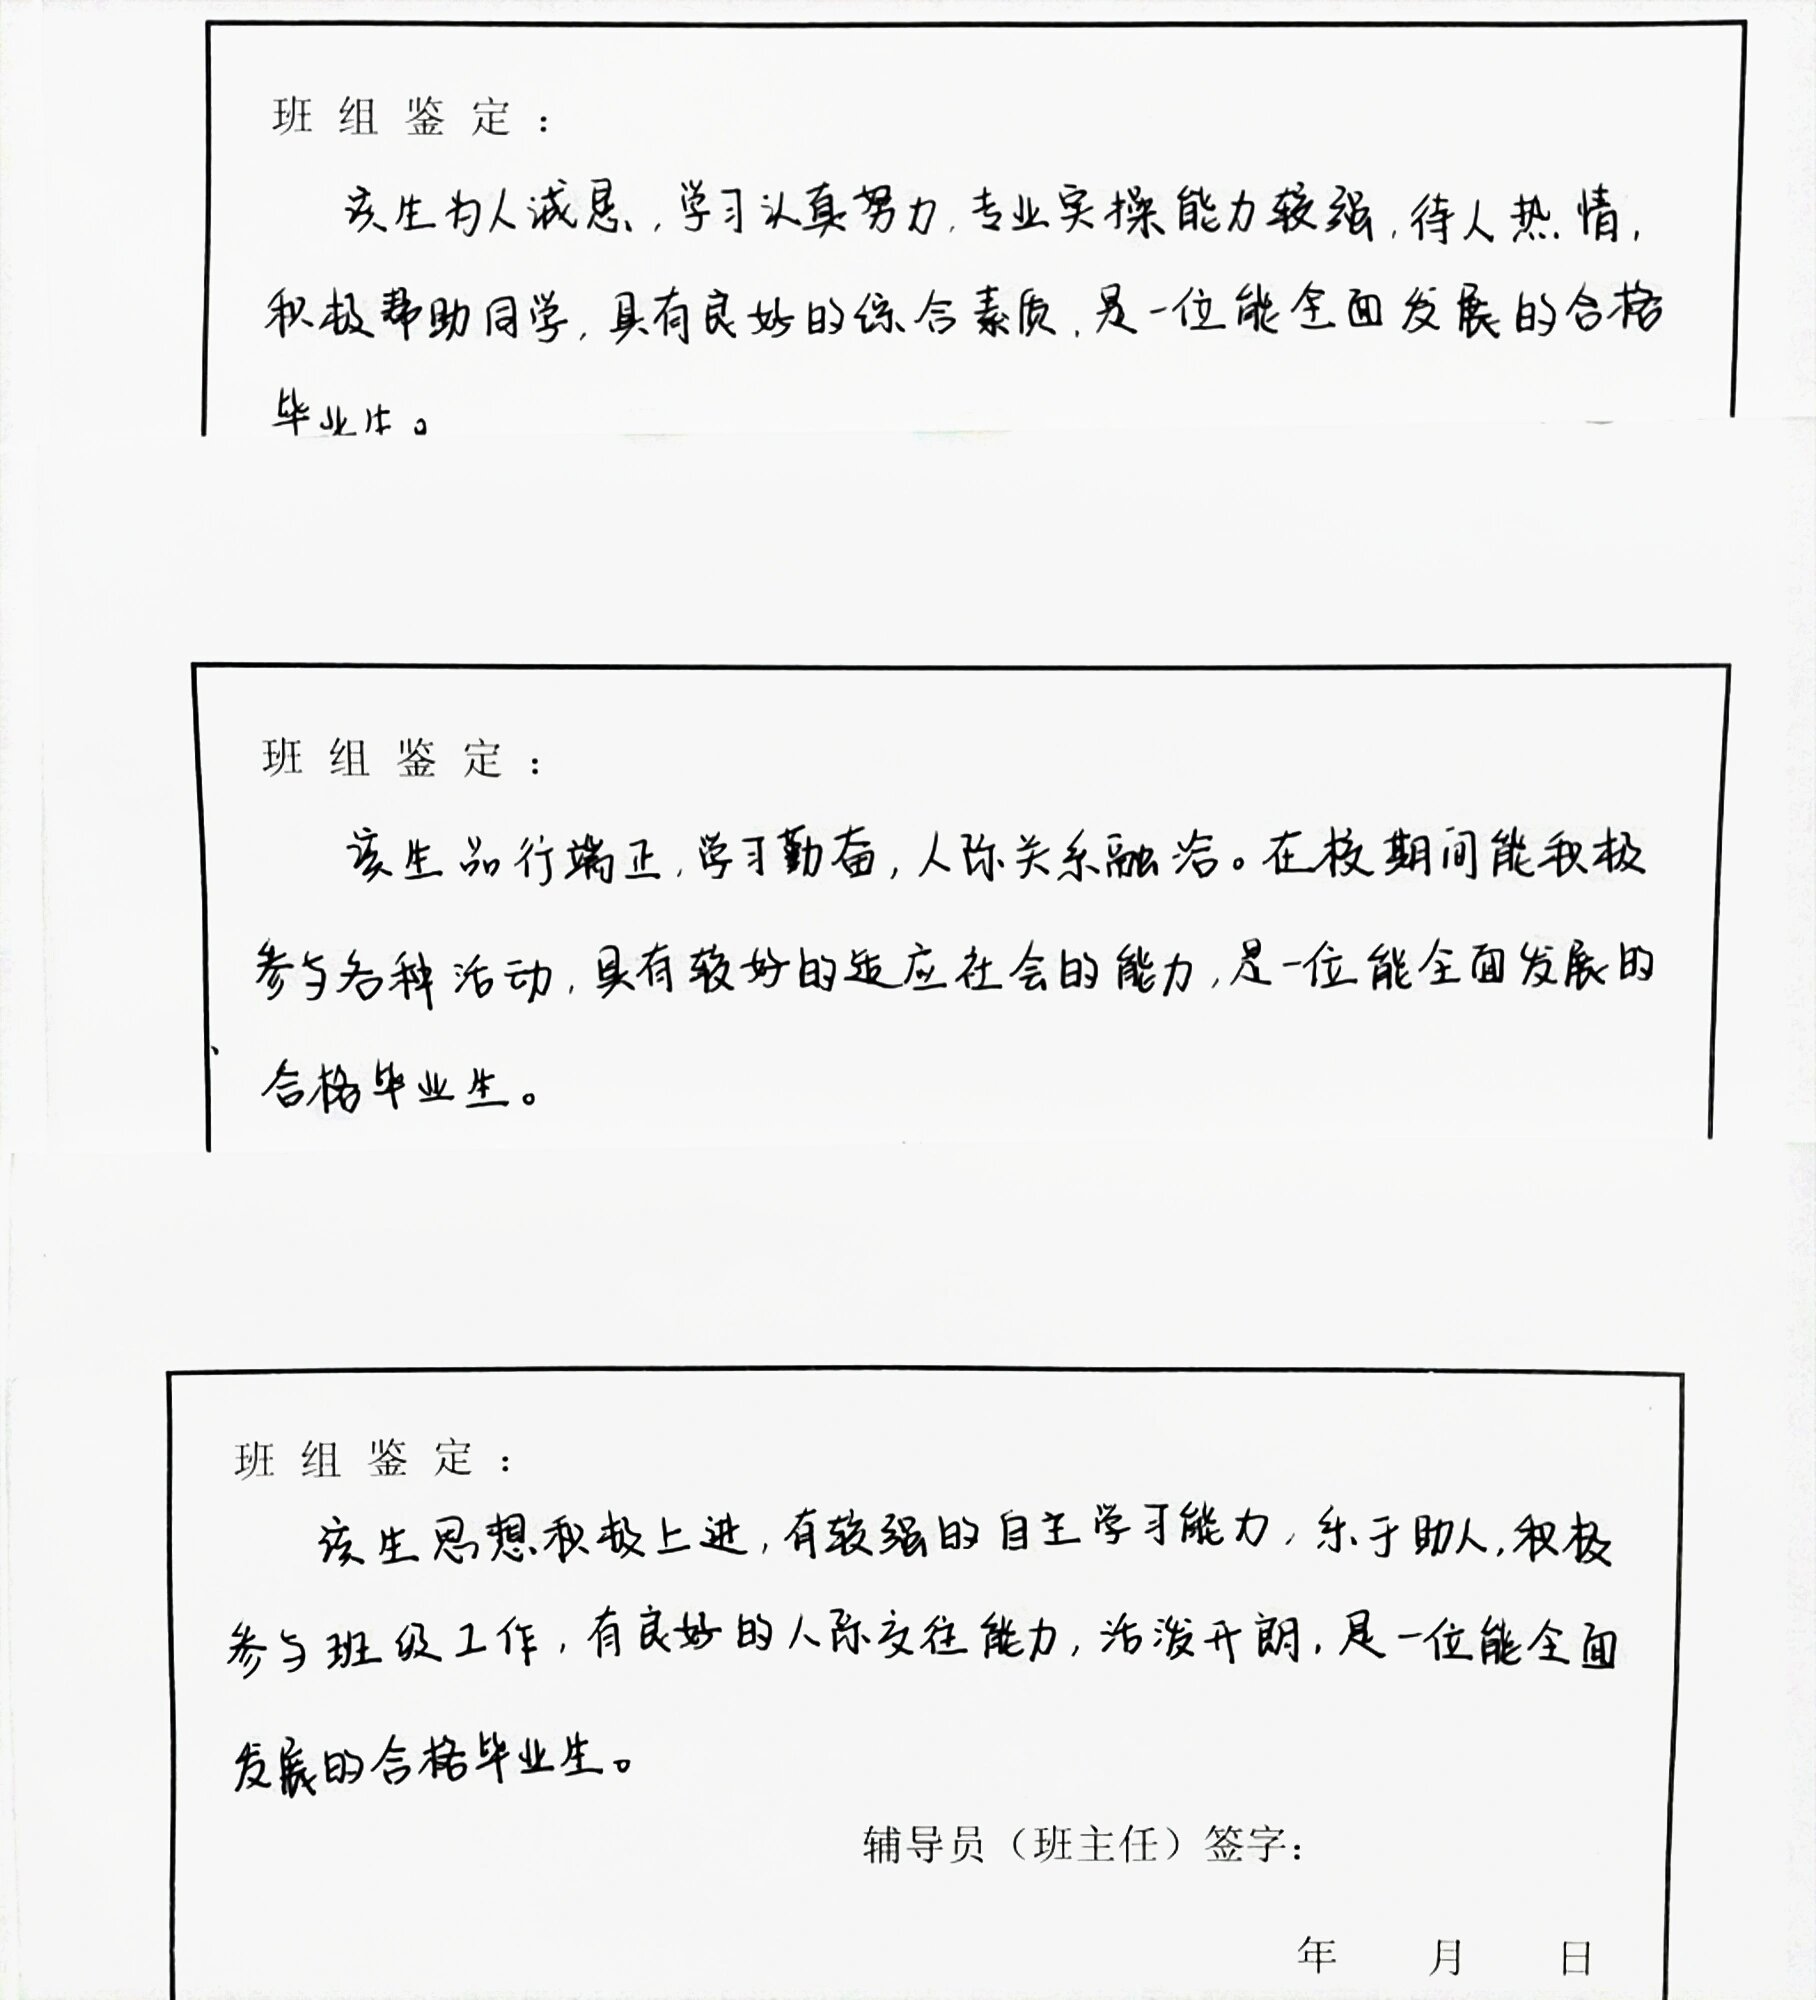 班组鉴定：
该生为人诚恳，学习认真努力，专业实操能力较强，待人热情，
积极帮助同学，具有良好的综合素质，是一位能全面发展的合格
毕业生。
班组鉴定：
该生品行端正，学习勤奋，人际关系融洽。在校期间能积极
参与各种活动，具有较好的适应社会的能力，是一位能全面发展的
合格毕业生。
班组鉴定：
该生思想积极上进，有较强的自主学习能力，乐于助人，积极
参与班级工作，有良好的人际交往能力，活泼开朗，是一位能全面
发展的合格毕业生。
辅导员（班主任）签字：
年 月 日